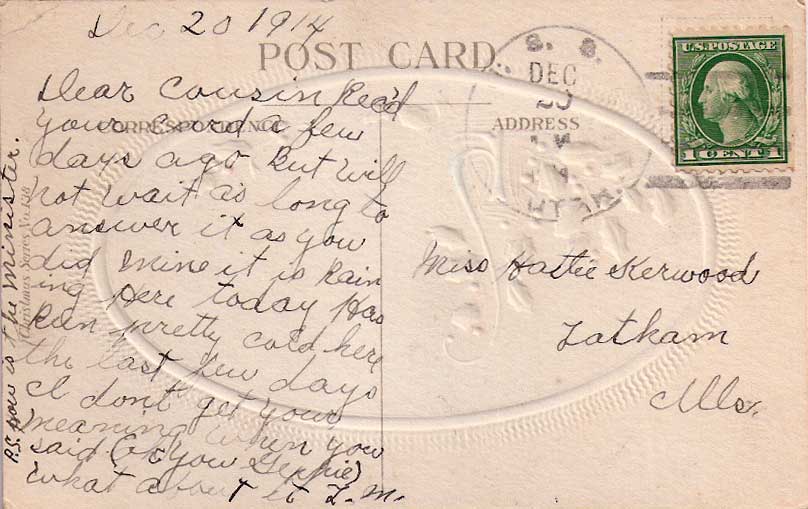 Dec 20 1914
POST CARD
CORRESPONDENCE
ADDRESS
U.S. POSTAGE
1 CENT 1
DEC
Dear Cousin Rec'd
your card a few
days ago But will
not wait as long to
answer it as you
did mine it is Rain
ing here today Has
Ben pretty cold here
the last few days
I don't get your
meaning when you
said (oh you Gennie)
what about it L.M.
P.S. how is the Minister.
Christmas Series No.
Miss Hattie Kerwood
Latham
Ills.